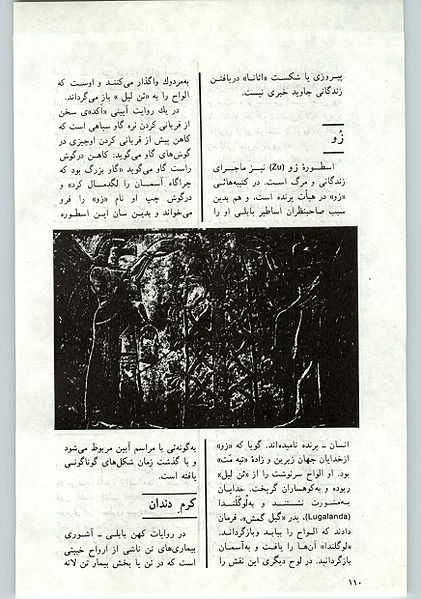 پیروزی یا شکست «اتانا» دریافتن
زندگانی جاوید خبری نیست.
زُو
اسطورهٔ زُو (Zu) نیز ماجرای
زندگانی و مرگ است. در کتیبه‌هائی
«زو» در هیأت پرنده است، و هم بدین
سبب صاحبنظران اساطیر بابلی او را
انسان ـ پرنده نامیده‌اند. گویا که «زو»
ازخدایان جهان زیرین و زادهٔ «تیه مَت»
بود. او الواح سرنوشت را از «ئن لیل»
ربوده و به‌کوهساران گریخت. خدایان
به‌مشورت نشستند و به‌لوگَلَندا
(Lugalanda)، پدر «گیل گمش»، فرمان
دادند که الواح را بیابد وبازگرداند.
«لوگلندا» آن‌ها را یافت و به‌آسمان
بازگردانید. در لوح دیگری این نقش را
به‌مردوك واگذار می‌کنند و اوست که
الواح را به «ئن لیل» باز می‌گرداند.
در یك روایت آیینی «اکدی» سخن
از قربانی کردن نره گاو سیاهی است که
کاهن پیش از قربانی کردن اوچیزی در
گوش‌های گاو می‌گوید: کاهن درگوش
راست گاو می‌گوید «گاو بزرگ بود که
چراگاه آسمان را لگدمال کرد» و
درگوش چپ او نام «زو» را فرو
می‌خواند و بدین سان این اسطوره
به‌گونه‌ئی با مراسم آیین مربوط می‌شود
و با گذشت زمان شکل‌های گوناگونی
یافته است.
کرم دندان
در روایات کهن بابلی ـ آشوری
بیماری‌های تن ناشی از ارواح خبیثی
است که در تن یا بخش بیمار تن لانه
۱۱۰